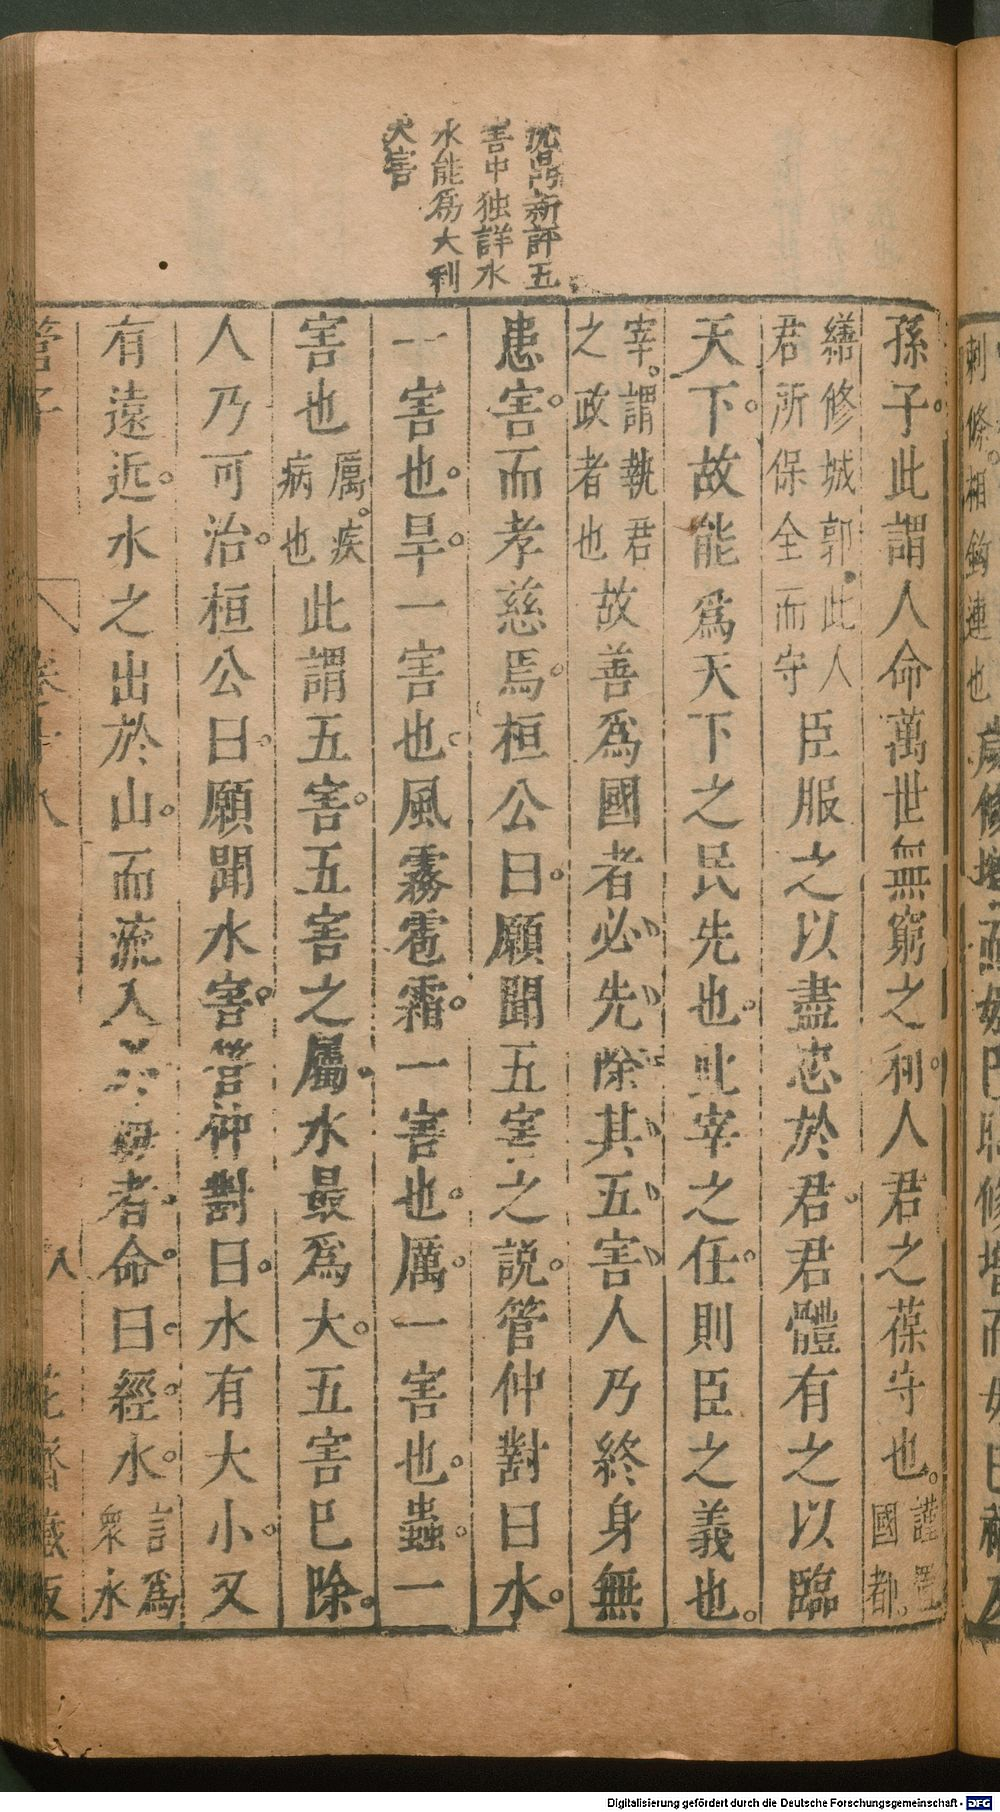 新評五
害中独詳水
水能爲大利
大害
孫子此謂人命萬世無窮之利人君之葆守也謹置國都
繕修城郭此人君所保全而守臣服之以盡忠於君君體有之以臨
天下故能爲天下之民先也此宰之任則臣之義也
宰謂執君之政者也故善爲國者必先除其五害人乃終身無
患害而孝慈焉桓公曰願聞五害之說管仲對曰水
一害也旱一害也風霧雹霜一害也厲一害也蟲一
害也厲疾病也此謂五害五害之屬水最爲大五害已除
人乃可治桓公曰願聞水害管仲對曰水有大小又
有遠近水之出於山而流入者命曰經水言爲衆水
管子
八
花齋藏板
刺條相鉤連也
Digitalisierung gefördert durch die Deutsche Forschungsgemeinschaft - DFG